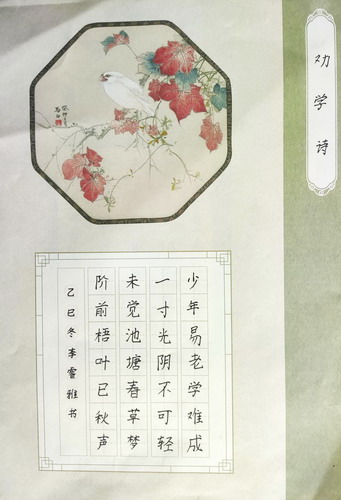 劝学诗
少年易老学难成
一寸光阴不可轻
未觉池塘春草梦
阶前梧叶已秋声
乙巳冬李雪雅书